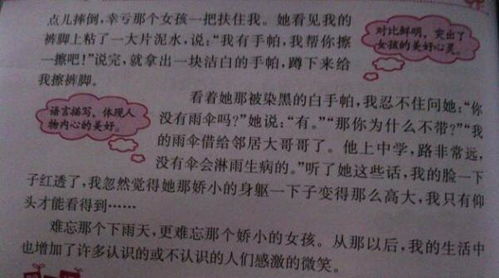 点儿摔倒，幸亏那个女孩一把扶住我。她看见我的
裤脚上粘了一大片泥水，说：“我有手帕，我帮你擦
一擦吧！”说完，就拿出一块洁白的手帕，蹲下来给
我擦裤脚。
对比鲜明，突出了
女孩的美好心灵。
看着她那被染黑的白手帕，我忍不住问她：“你
没有雨伞吗？”她说：“有。”“那你为什么不带？”“我
的雨伞借给邻居大哥哥了。他上中学，路非常远，
没有伞会淋雨生病的。”听了她这些话，我的脸一下
语言描写、体现人
物内心的美好。
子红透了，我忽然觉得她那娇小的身躯一下子变得那么高大，我只有仰
头才能看得到……
难忘那个下雨天，更难忘那个娇小的女孩。从那以后，我的生活中
也增加了许多认识的或不认识的人们感激的微笑。